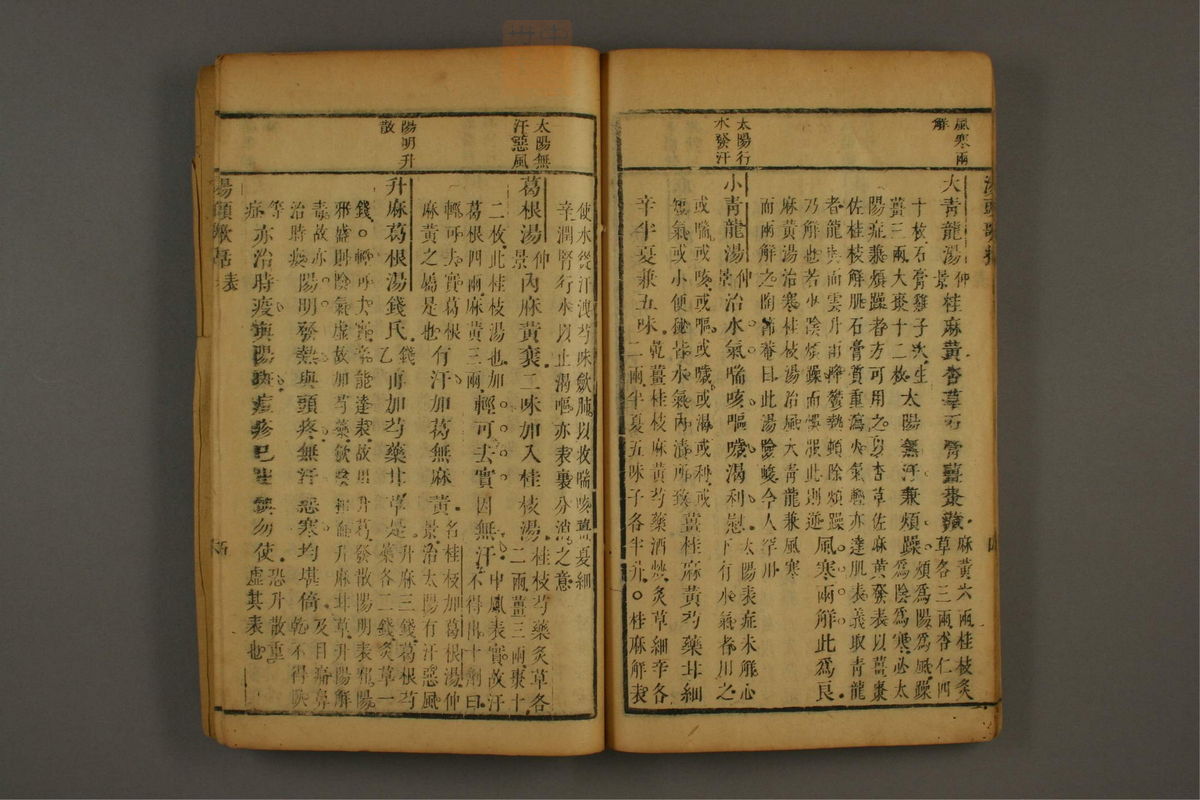 風寒兩
解
大青龍湯仲景桂麻黃杏草石膏薑棗藏麻黃六兩桂枝炙草各三兩杏仁四
十枚石膏雞子大生薑三兩大棗十二枚太陽無汗兼煩躁煩爲陽爲風躁爲陰爲寒必太
陽症兼煩躁者方可用之以杏草佐麻黃發表以薑棗
佐桂枝解肌石膏質重瀉火氣輕亦達肌表義取青龍
者龍興而雲升雨降鬱熱頓除煩躁
乃解也若少陰煩躁而誤服此則逆風寒兩解此爲良
麻黃湯治寒桂枝湯治風大青龍兼風寒
而兩解之陶節菴曰此湯險峻今人罕用
太陽行
水發汗
小青龍湯仲景治水氣喘咳嘔噦渴利慰太陽表症未解心下有水氣者用之
或喘或咳或嘔或噦或渴或利或
短氣或小便秘皆水氣內漬所致薑桂麻黃芍藥甘細
辛半夏兼五味乾薑桂枝麻黃芍藥酒炒炙草細辛各二兩半夏五味子各半升○桂麻解表
使水從汗泄芍味斂肺以收喘咳薑夏細
辛潤腎行水以止渴嘔亦表裏分消之意
太陽無
汗惡風
葛根湯仲景內麻黃襄二味加入桂枝湯桂枝芍藥炙草各二兩薑三兩棗十
二枚此桂枝湯也加
葛根四兩麻黃三兩輕可去實因無汗中風表實故汗不得出十劑曰
輕可去實葛根
麻黃之屬是也有汗加葛無麻黃名桂枝加葛根湯仲景治太陽有汗惡風
陽明升
散
升麻葛根湯錢氏錢乙再加芍藥甘草是升麻三錢葛根芍藥各二錢炙草一
錢○輕可去實辛能達表故用升葛發散陽明表邪陽
邪盛則陰氣虛故加芍藥斂陰和血升麻甘草升陽解
毒故亦
治時疫陽明發熱與頭疼無汗惡寒均堪倚及目痛鼻乾不得臥
等
症亦治時疫與陽斑痘疹已出愼勿使恐升散重虛其表也
湯頭歌括 表